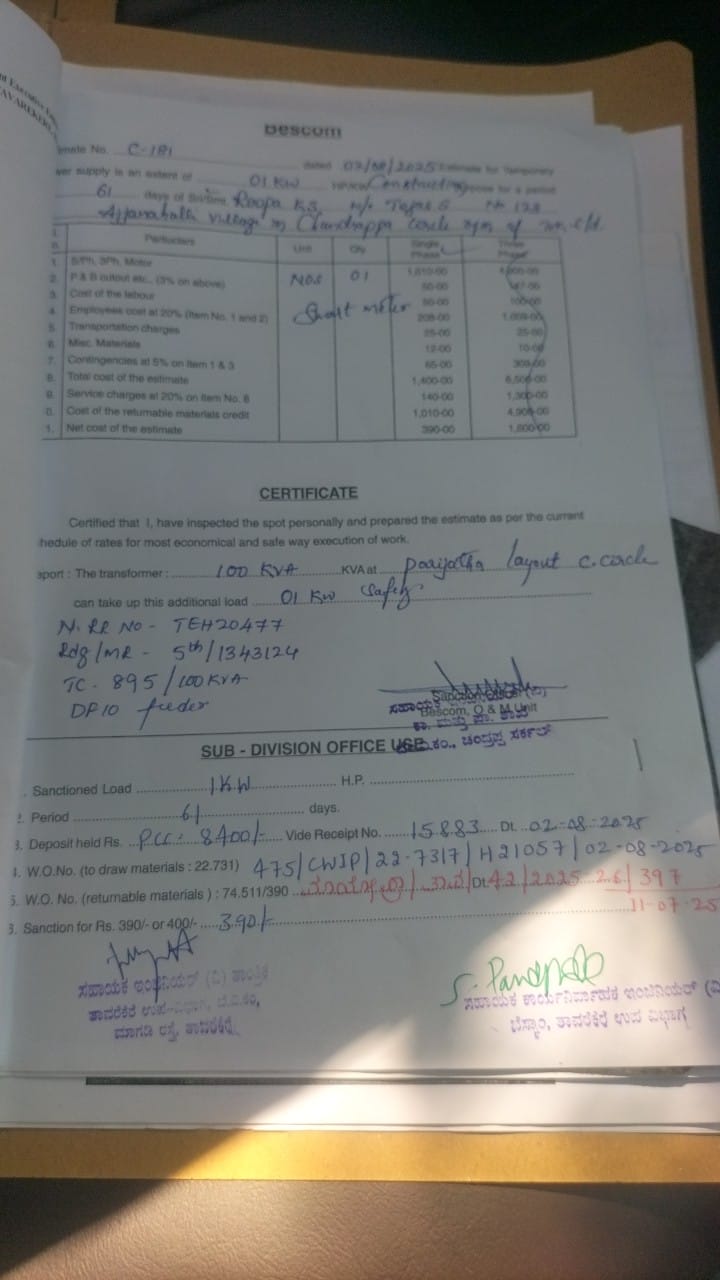 BESCOM
imate No. C-181 dated 02/08/2025 Estimate for Temporary
wer supply is an extent of 01 KW
61 days of Roopa K.S, w/o Tejas G No 128
village in Chandrappa circle
Particulars Unit Qty Single Phase Three Phase
1. S/Ph, 3Ph, Motor NOS 01 1,010-00
2. P & B cutout etc., (5% on above) 50-00
3. Cost of the labour 50-00 100-00
4. Employees cost at 20% (Item No. 1 and 2) Smart meter 208-00
5. Transportation charges 25-00 25-00
6. Misc. Materials 12-00 10-00
7. Contingencies at 5% on Item 1 & 3 65-00
8. Total cost of the estimate 1,400-00 6,500-00
9. Service charges at 20% on Item No. 8 140-00 1,300-00
0. Cost of the returnable materials credit 1,010-00 4,900-00
1. Net cost of the estimate 390-00 1,600-00
CERTIFICATE
Certified that I, have inspected the spot personally and prepared the estimate as per the current
hedule of rates for most economical and safe way execution of work.
eport : The transformer : 100 KVA KVA at parijatha layout c.circle
can take up this additional load 01 KW safely
N. RR NO - TEH20477
Rdg/MR - 5th/1343124
TC - 895/100KVA
DP10 feeder
Bescom, O & M Unit
SUB - DIVISION OFFICE USE
. Sanctioned Load 1KW H.P.
2. Period 61 days.
3. Deposit held Rs. 8400/- Vide Receipt No. 15883 Dt. 02-08-2025
4. W.O.No. (to draw materials : 22.731) 475/CWIP/22-7317/H21057/02-08-2025
5. W.O. No. (returnable materials) : 74.511/390 Dt. 42/2025 26/397
11-07-25
6. Sanction for Rs. 390/- or 400/- 390/-
ಸಹಾಯಕ ಇಂಜಿನಿಯರ್ (ವಿ) ತಾಂತ್ರಿಕ
ತಾವರೆಕೆರೆ ಉಪ-ವಿಭಾಗ, ಬೆ.ವಿ.ಕಂ,
ಮಾಗಡಿ ರಸ್ತೆ, ತಾವರೆಕೆರೆ
ಸಹಾಯಕ ಕಾರ್ಯನಿರ್ವಾಹಕ ಇಂಜಿನಿಯರ್ (ವಿ
ಬೆಸ್ಕಾಂ, ತಾವರೆಕೆರೆ ಉಪ ವಿಭಾಗ